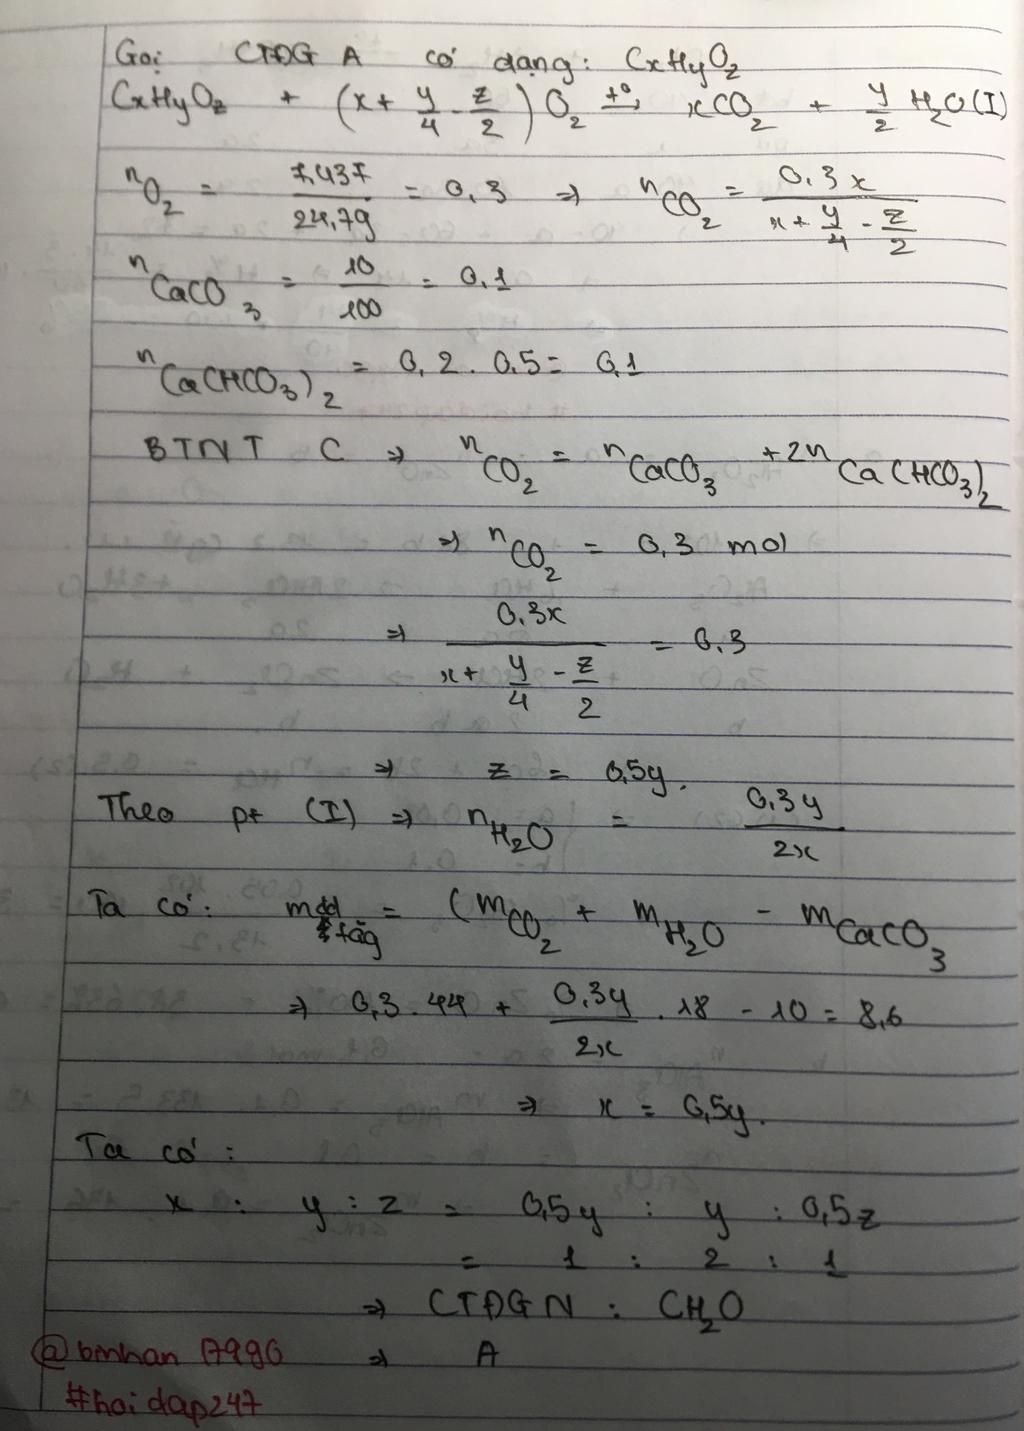 Gọi CTĐG A có dạng: CxHyOz
CxHyOz + (x + y/4 - z/2) O2 t°→ xCO2 + y/2 H2O (I)
nO2 = 7,437/24,79 = 0,3 ⇒ nCO2 = 0,3x/(x + y/4 - z/2)
nCaCO3 = 10/100 = 0,1
nCa(HCO3)2 = 0,2 . 0,5 = 0,1
BTNT C ⇒ nCO2 = nCaCO3 + 2nCa(HCO3)2
⇒ nCO2 = 0,3 mol
⇒ 0,3x/(x + y/4 - z/2) = 0,3
⇒ z = 0,5y.
Theo pt (I) ⇒ nH2O = 0,3y/2x
Ta có: mdd tăg = (mCO2 + mH2O - mCaCO3
⇒ 0,3 . 44 + 0,3y/2x . 18 - 10 = 8,6
⇒ x = 0,5y.
Ta có :
x : y : z = 0,5y : y : 0,5z
= 1 : 2 : 1
⇒ CTĐGN : CH2O
@bnhan7996 ⇒ A
#hoidap247